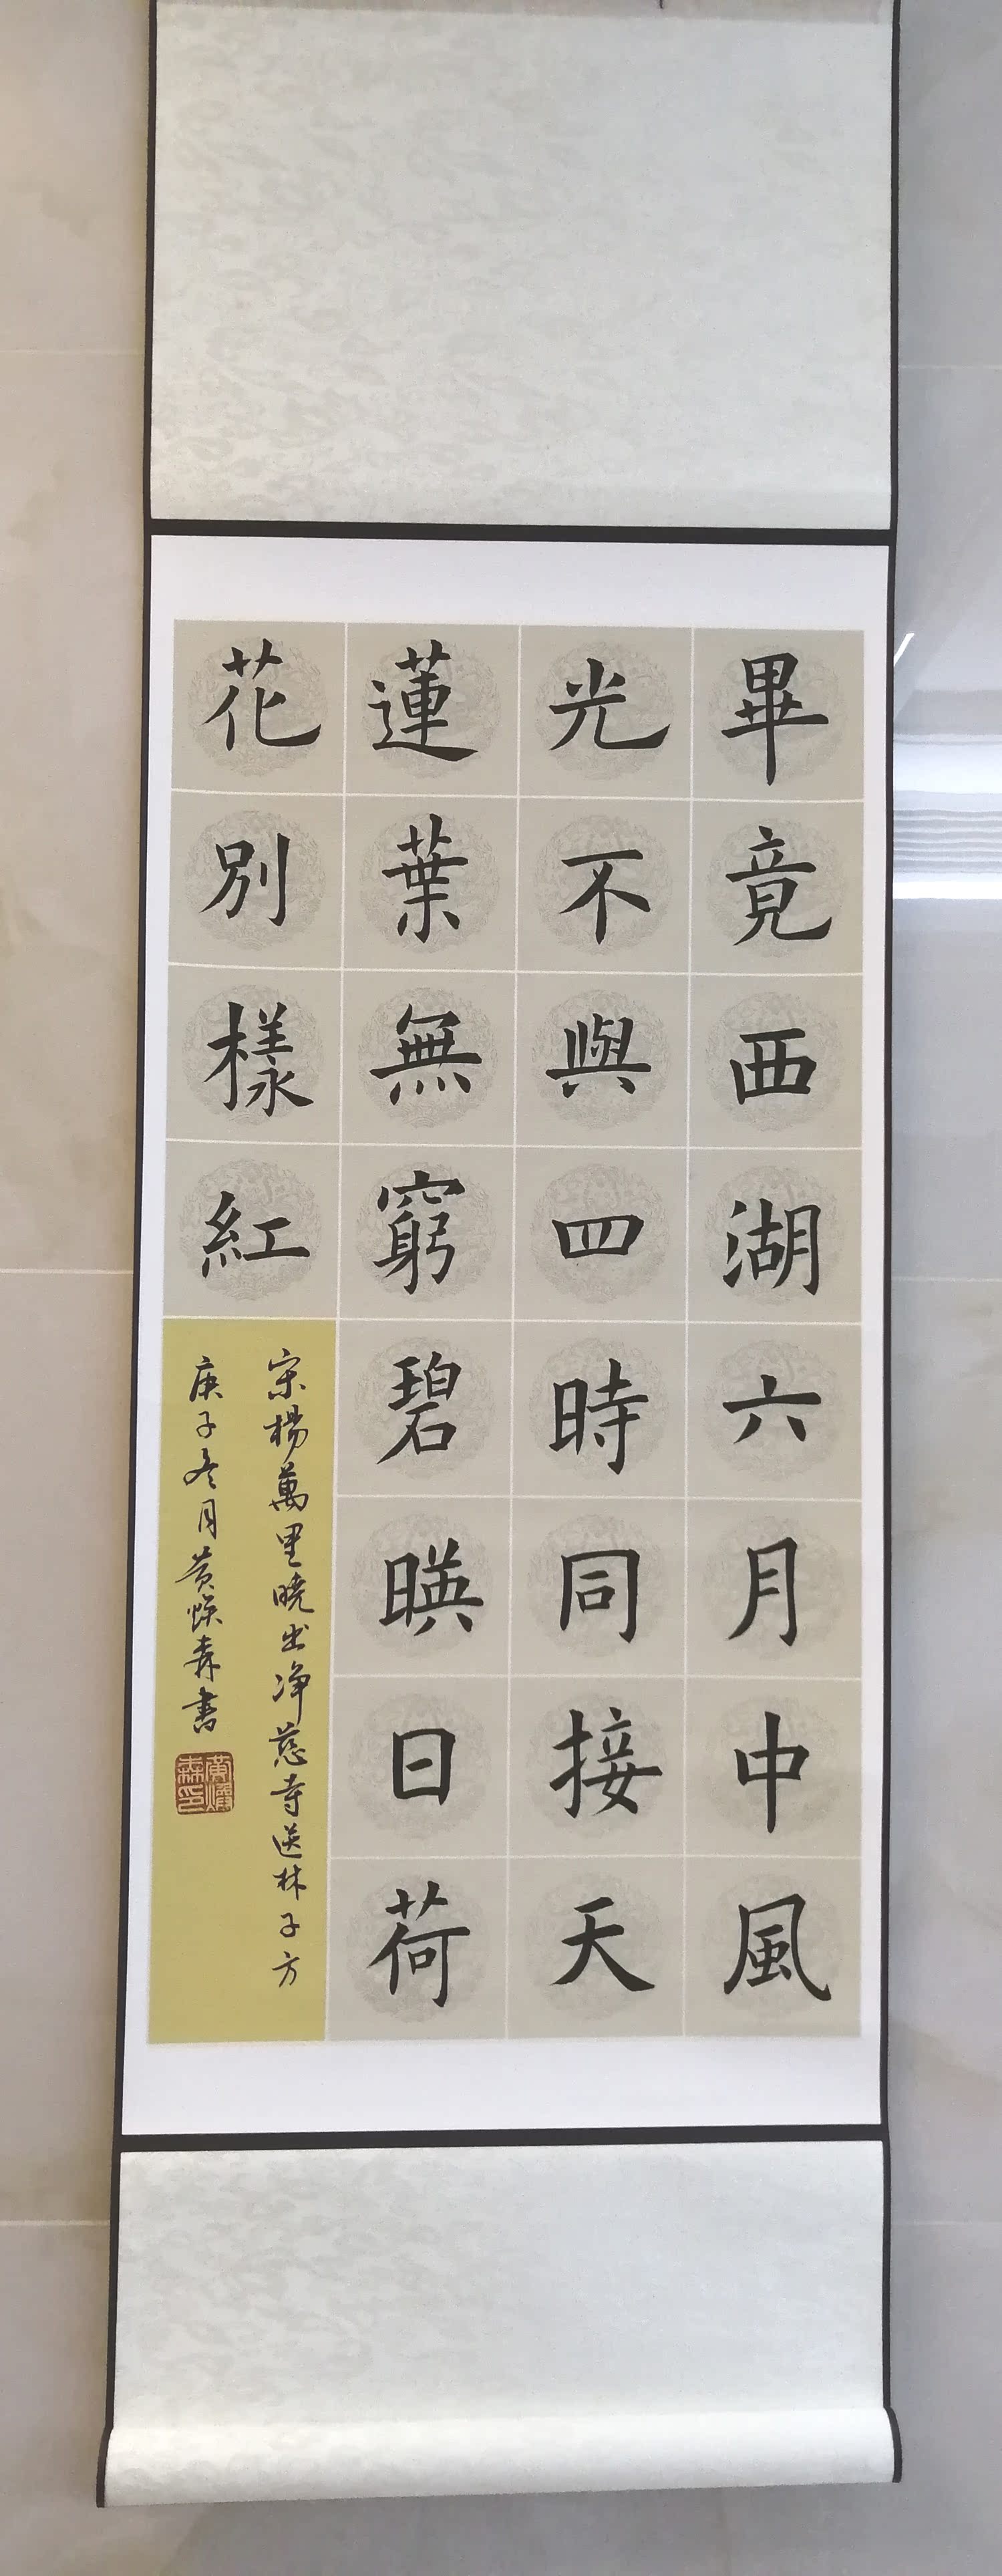 畢竟西湖六月中風
光不與四時同接天
蓮葉無窮碧暎日荷
花別樣紅
宋楊萬里曉出净慈寺送林子方
庚子冬月黄焕森書